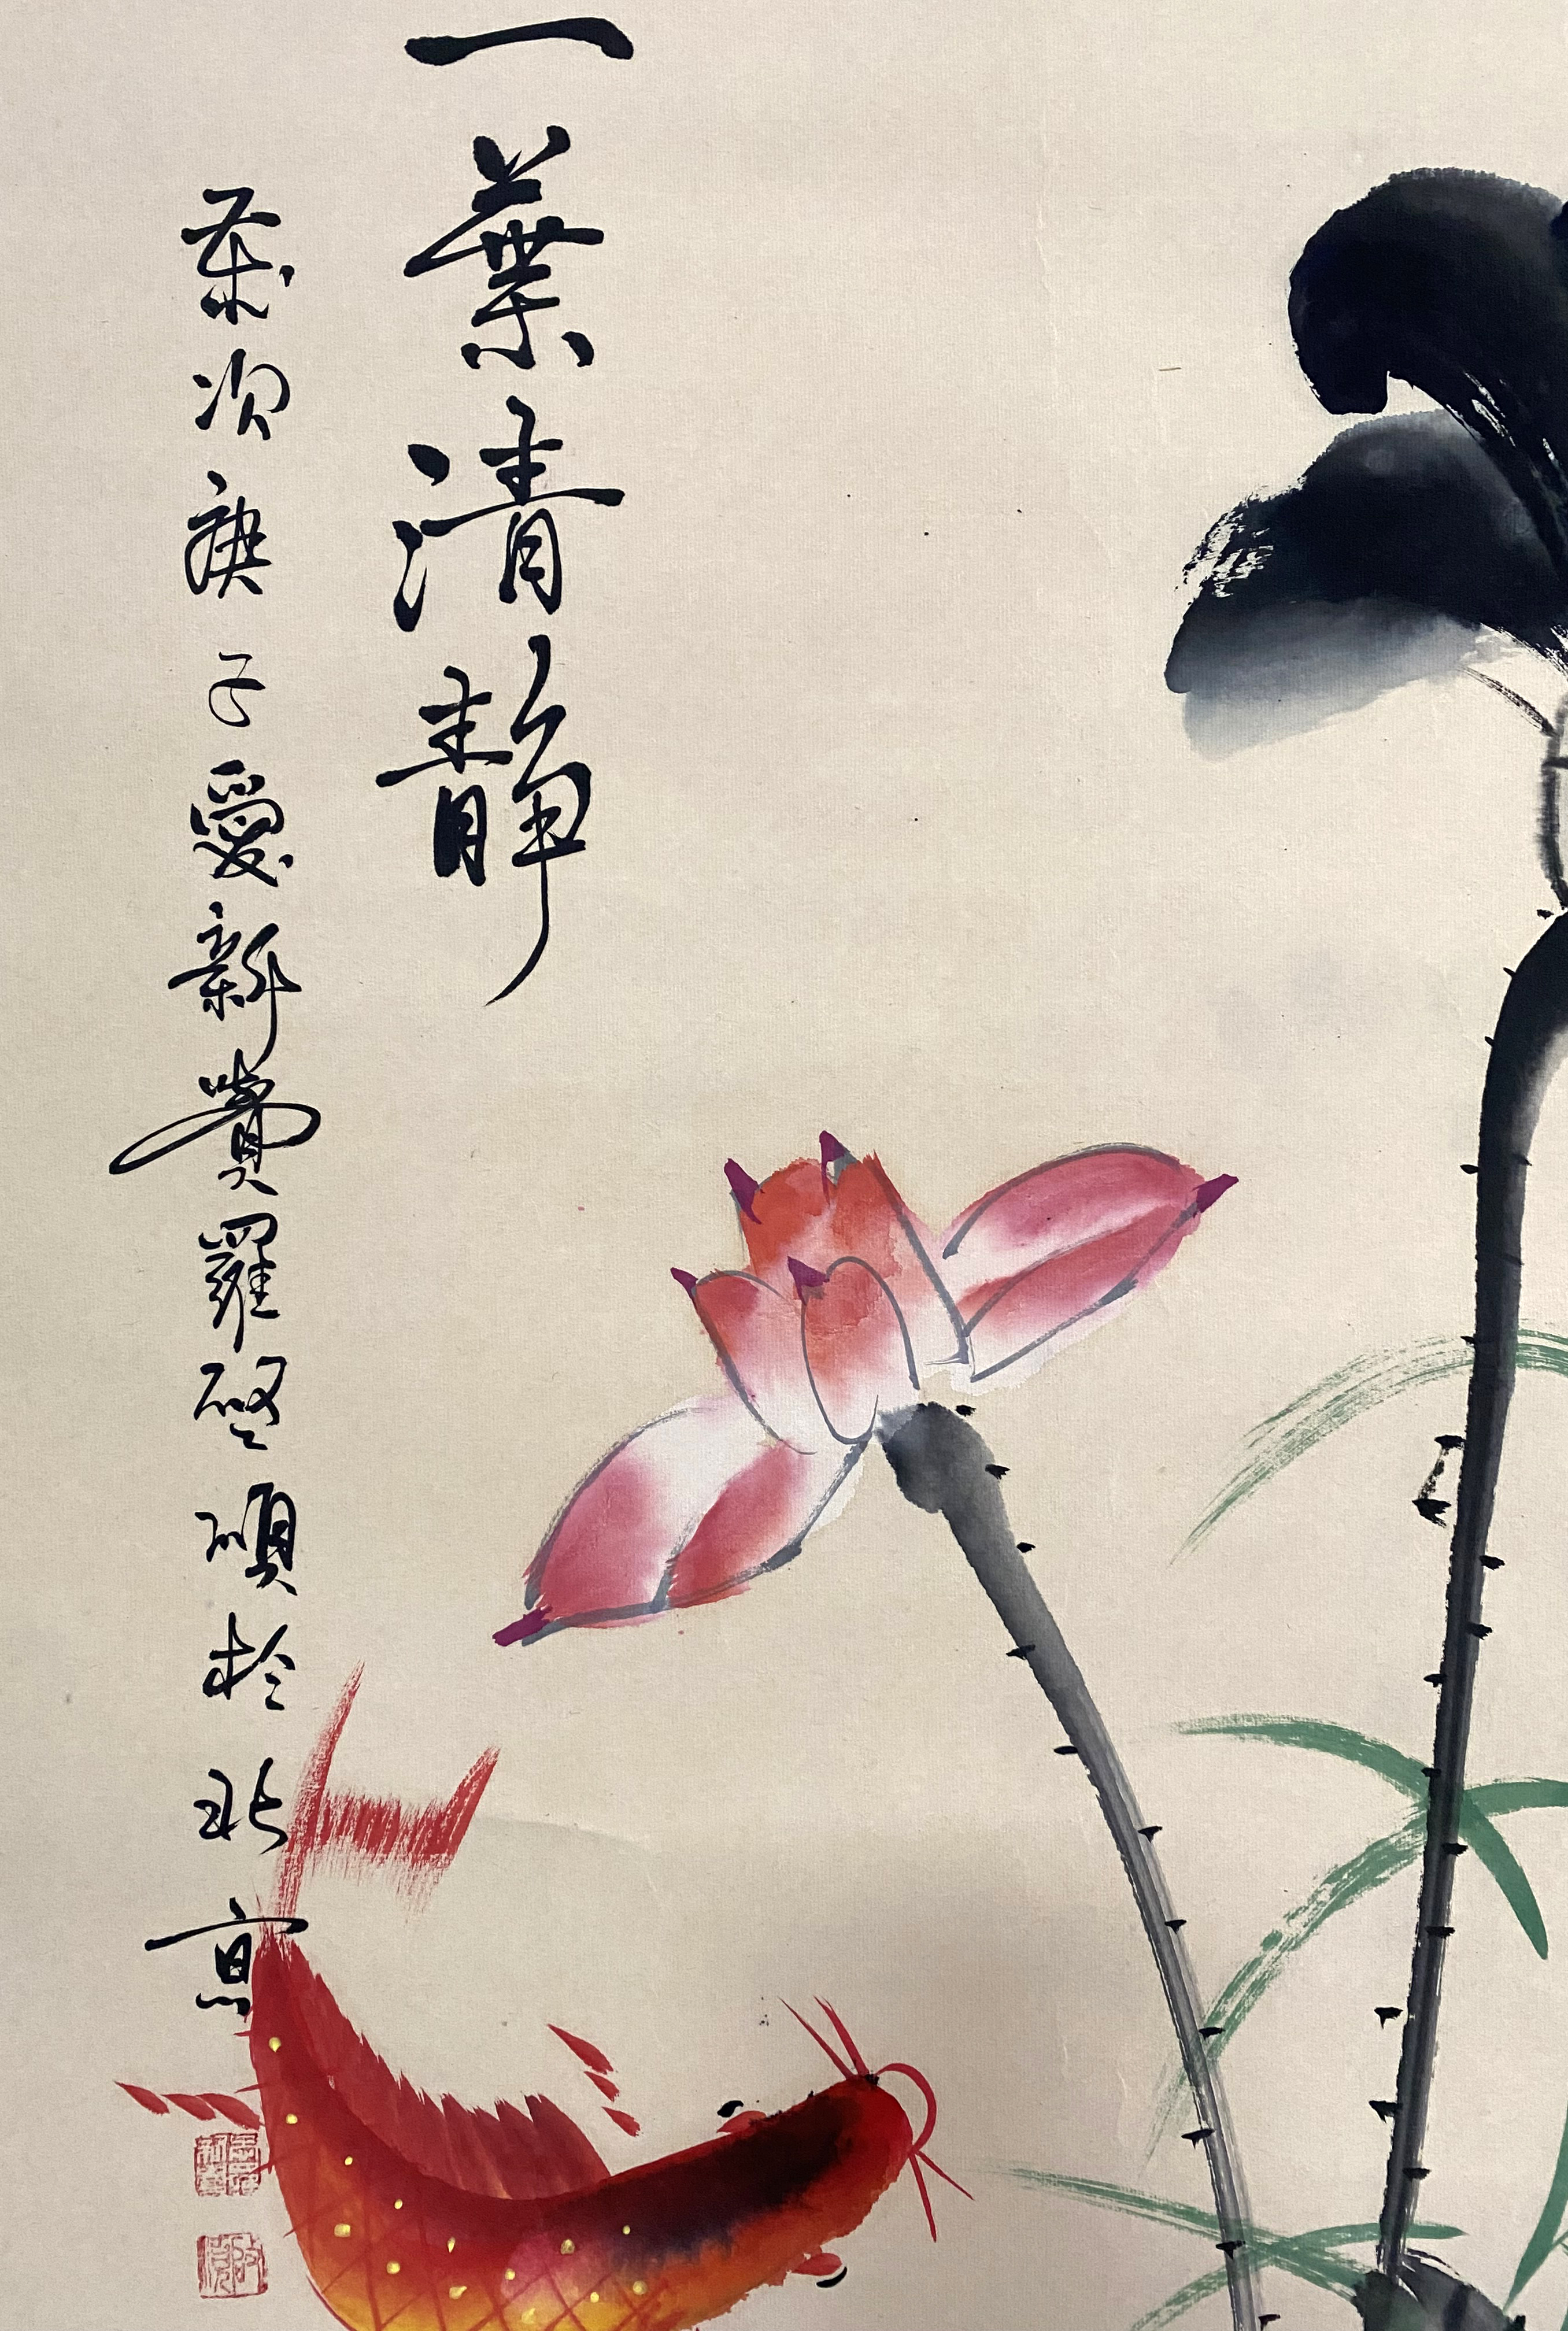 一葉清靜
歲次庚子愛新覺羅啓碩於北京